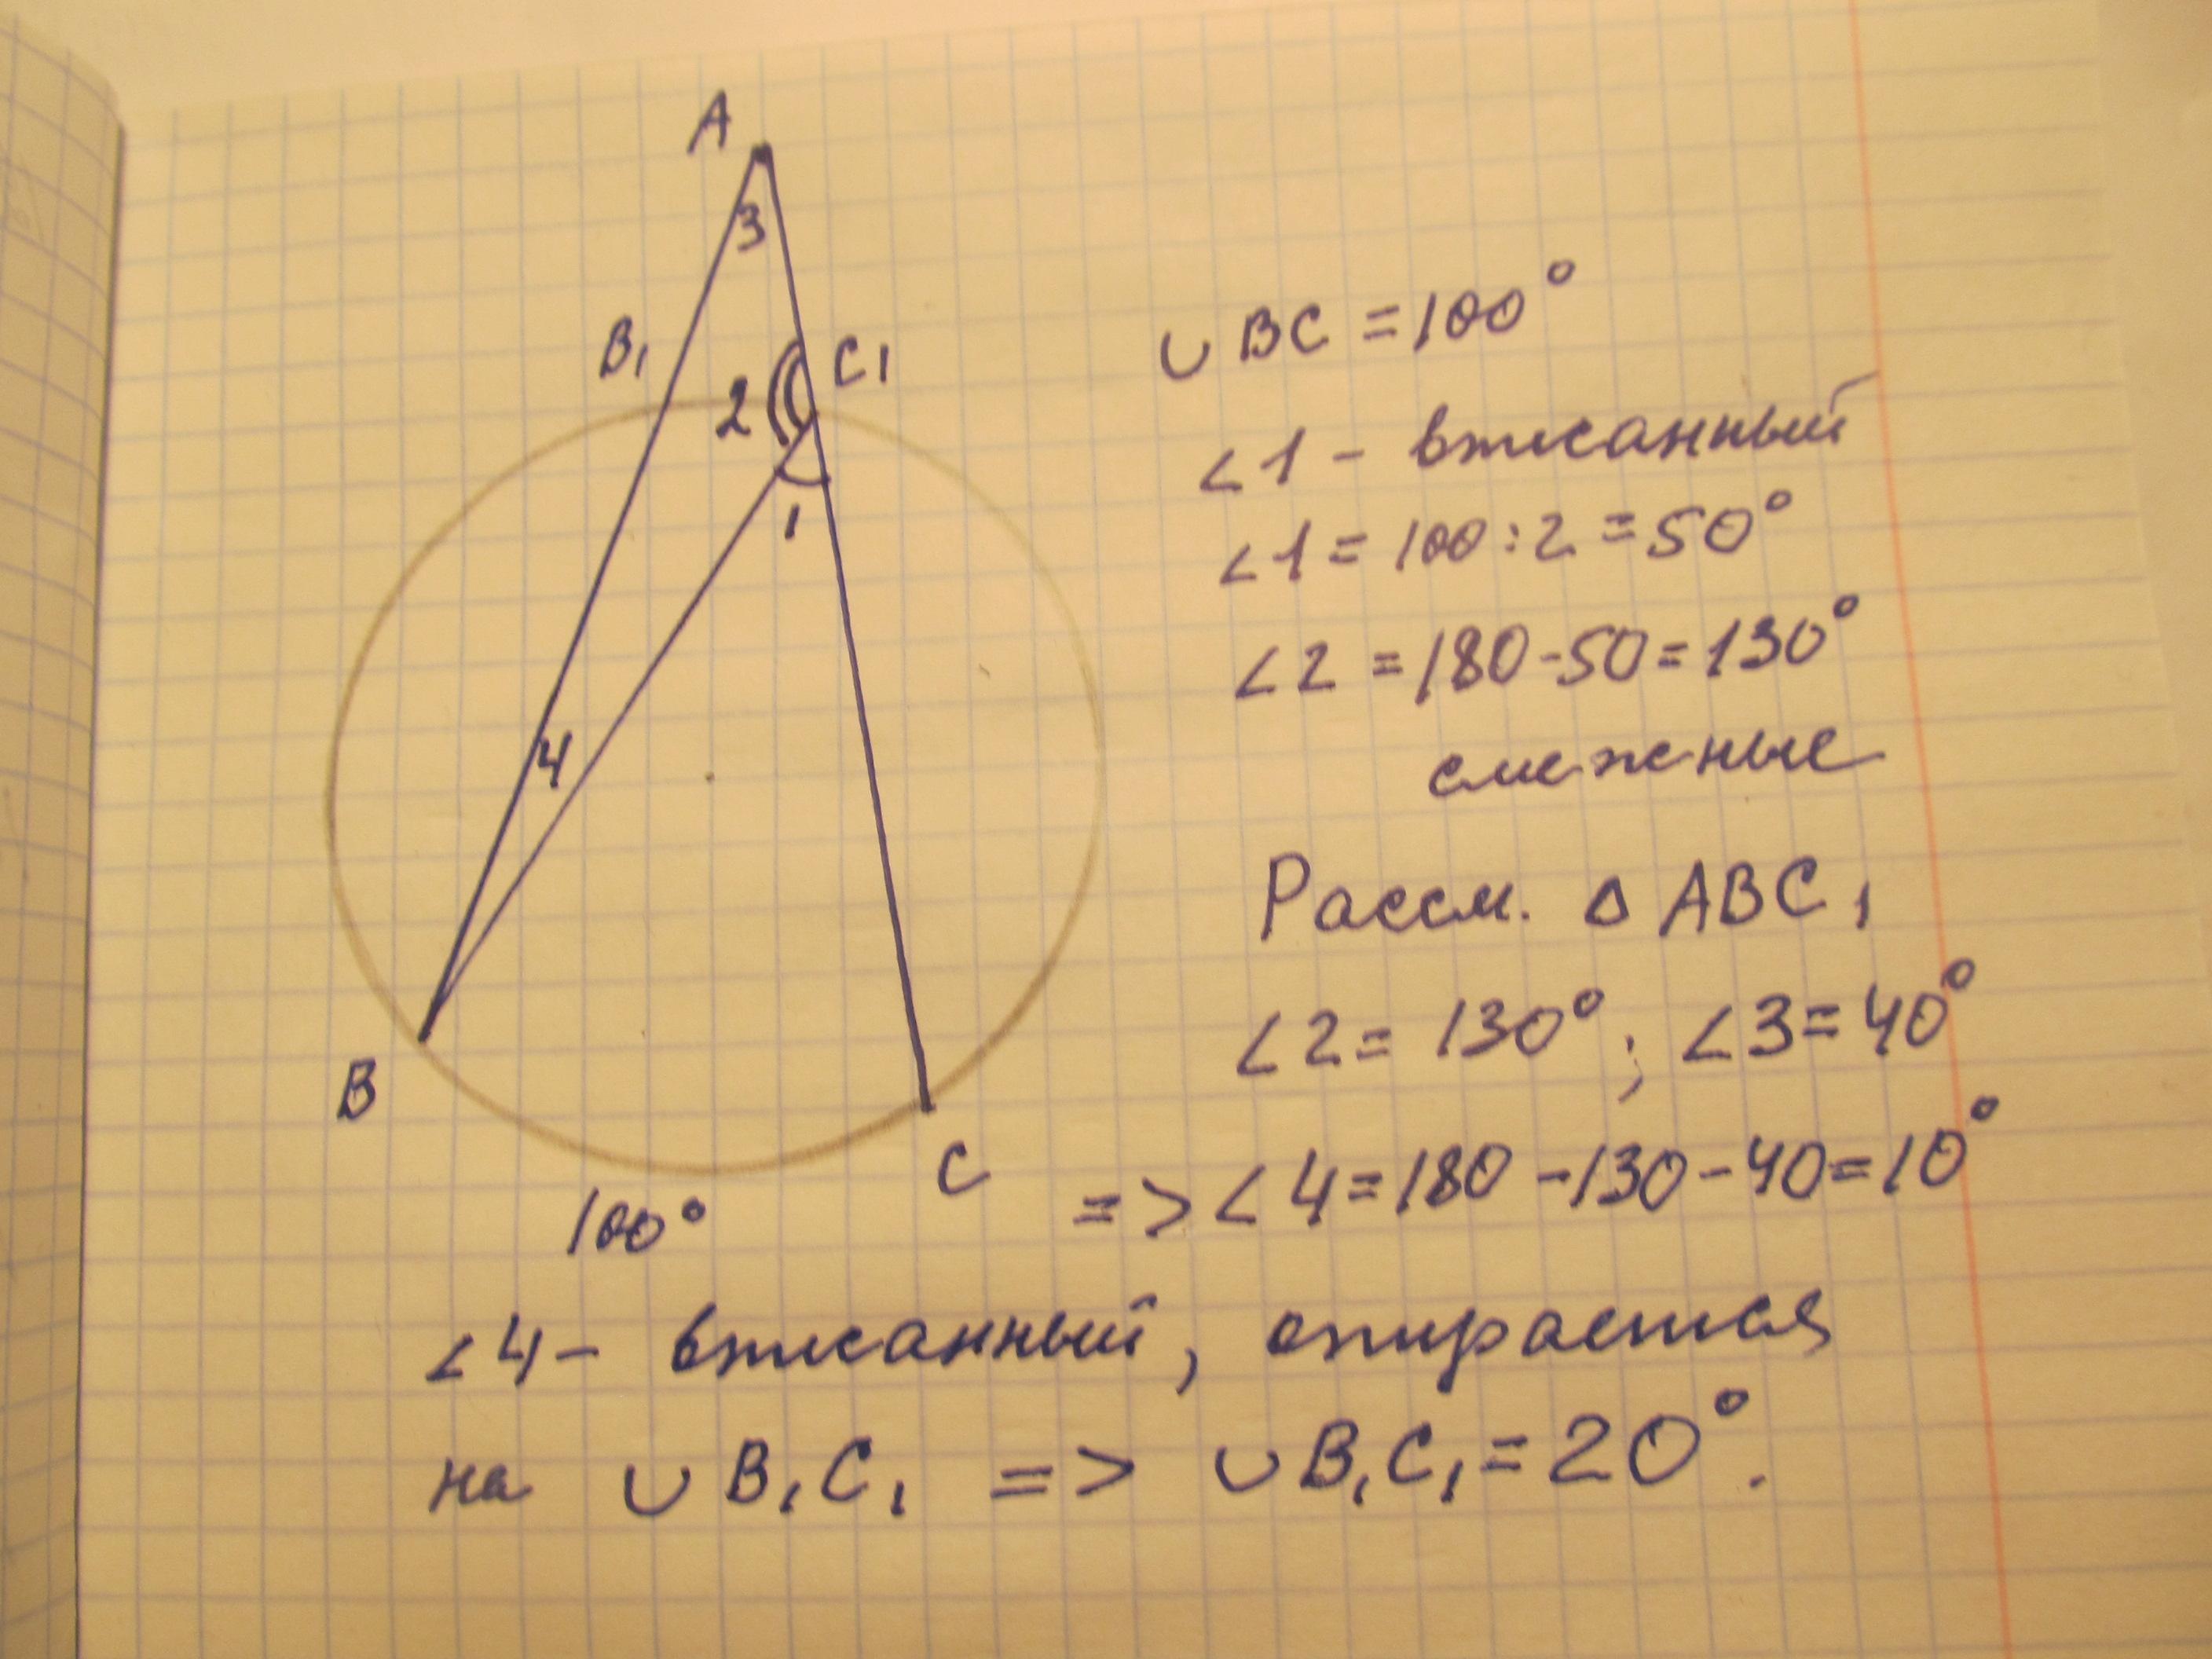 A
3
B₁
2
C₁
1
4
B
C
100°
∪ BC = 100°
∠1 - вписанный
∠1 = 100 : 2 = 50°
∠2 = 180 - 50 = 130°
смежные
Рассм. △ ABC₁
∠2 = 130° ; ∠3 = 40°
=> ∠4 = 180 - 130 - 40 = 10°
∠4 - вписанный, опирается
на ∪ B₁C₁ => ∪ B₁C₁ = 20°.